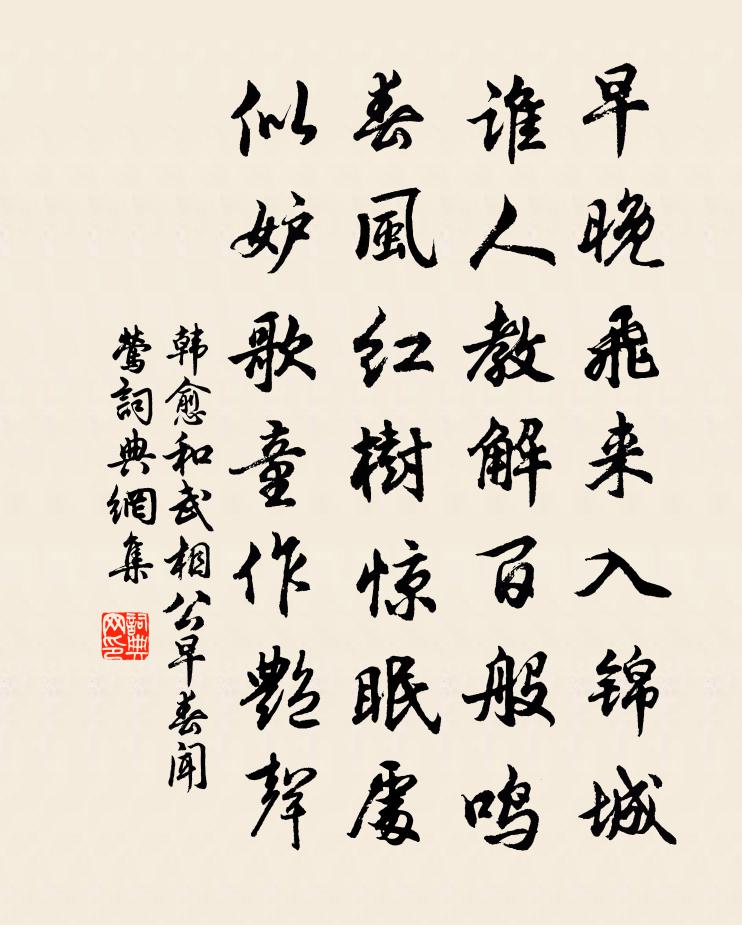 早晚飛来入锦城
谁人教解百般鸣
春風红樹惊眠處
似妒歌童作艷聲
韩愈和武相公早春闻
莺詞典網集
詞典网印